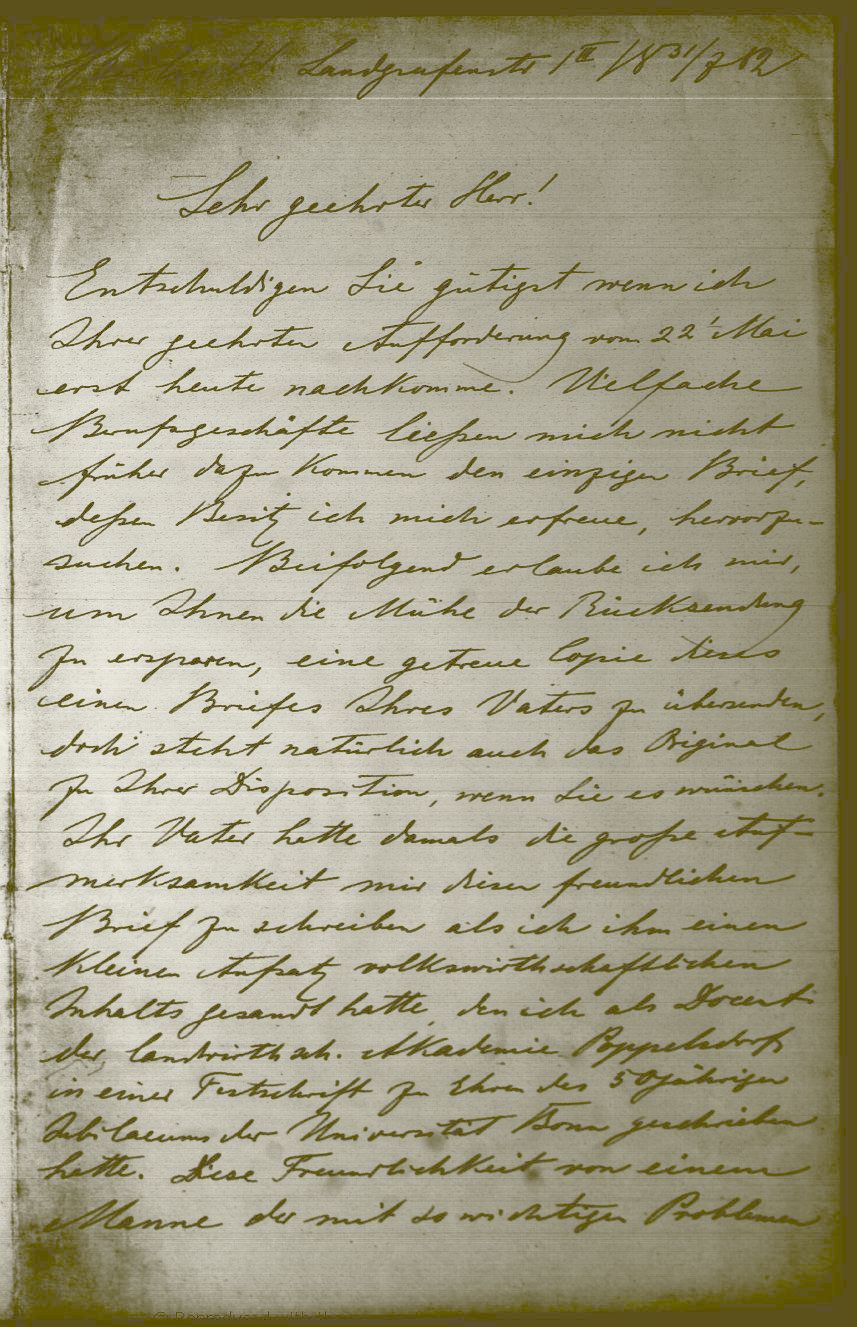 Berlin W. Landgrafenstr 1 III /18 31/7 82
Sehr geehrter Herr!
Entschuldigen Sie gütigst wenn ich
Ihrer geehrten Aufforderung vom 22' Mai
erst heute nachkomme. Vielfache
Berufsgeschäfte ließen mich nicht
früher dazu kommen den einzigen Brief,
deßen Besitz ich mich erfreue, hervorzu-
suchen. Beifolgend erlaube ich mir,
um Ihnen die Mühe der Rücksendung
zu ersparen, eine getreue Copie dieses
einen Briefes Ihres Vaters zu übersenden,
doch steht natürlich auch das Original
zu Ihrer Disposition, wenn Sie es wünschen.
Ihr Vater hatte damals die große Auf-
merksamkeit mir diesen freundlichen
Brief zu schreiben als ich ihm einen
kleinen Aufsatz volkswirthschaftlichen
Inhalts gesandt hatte, den ich als Docent
der landwirthsch. Akademie Poppelsdorf
in einer Festschrift zu Ehren des 50jährigen
Jubilaeums der Universität Bonn geschrieben
hatte. Diese Freundlichkeit von einem
Manne der mit so wichtigen Problemen